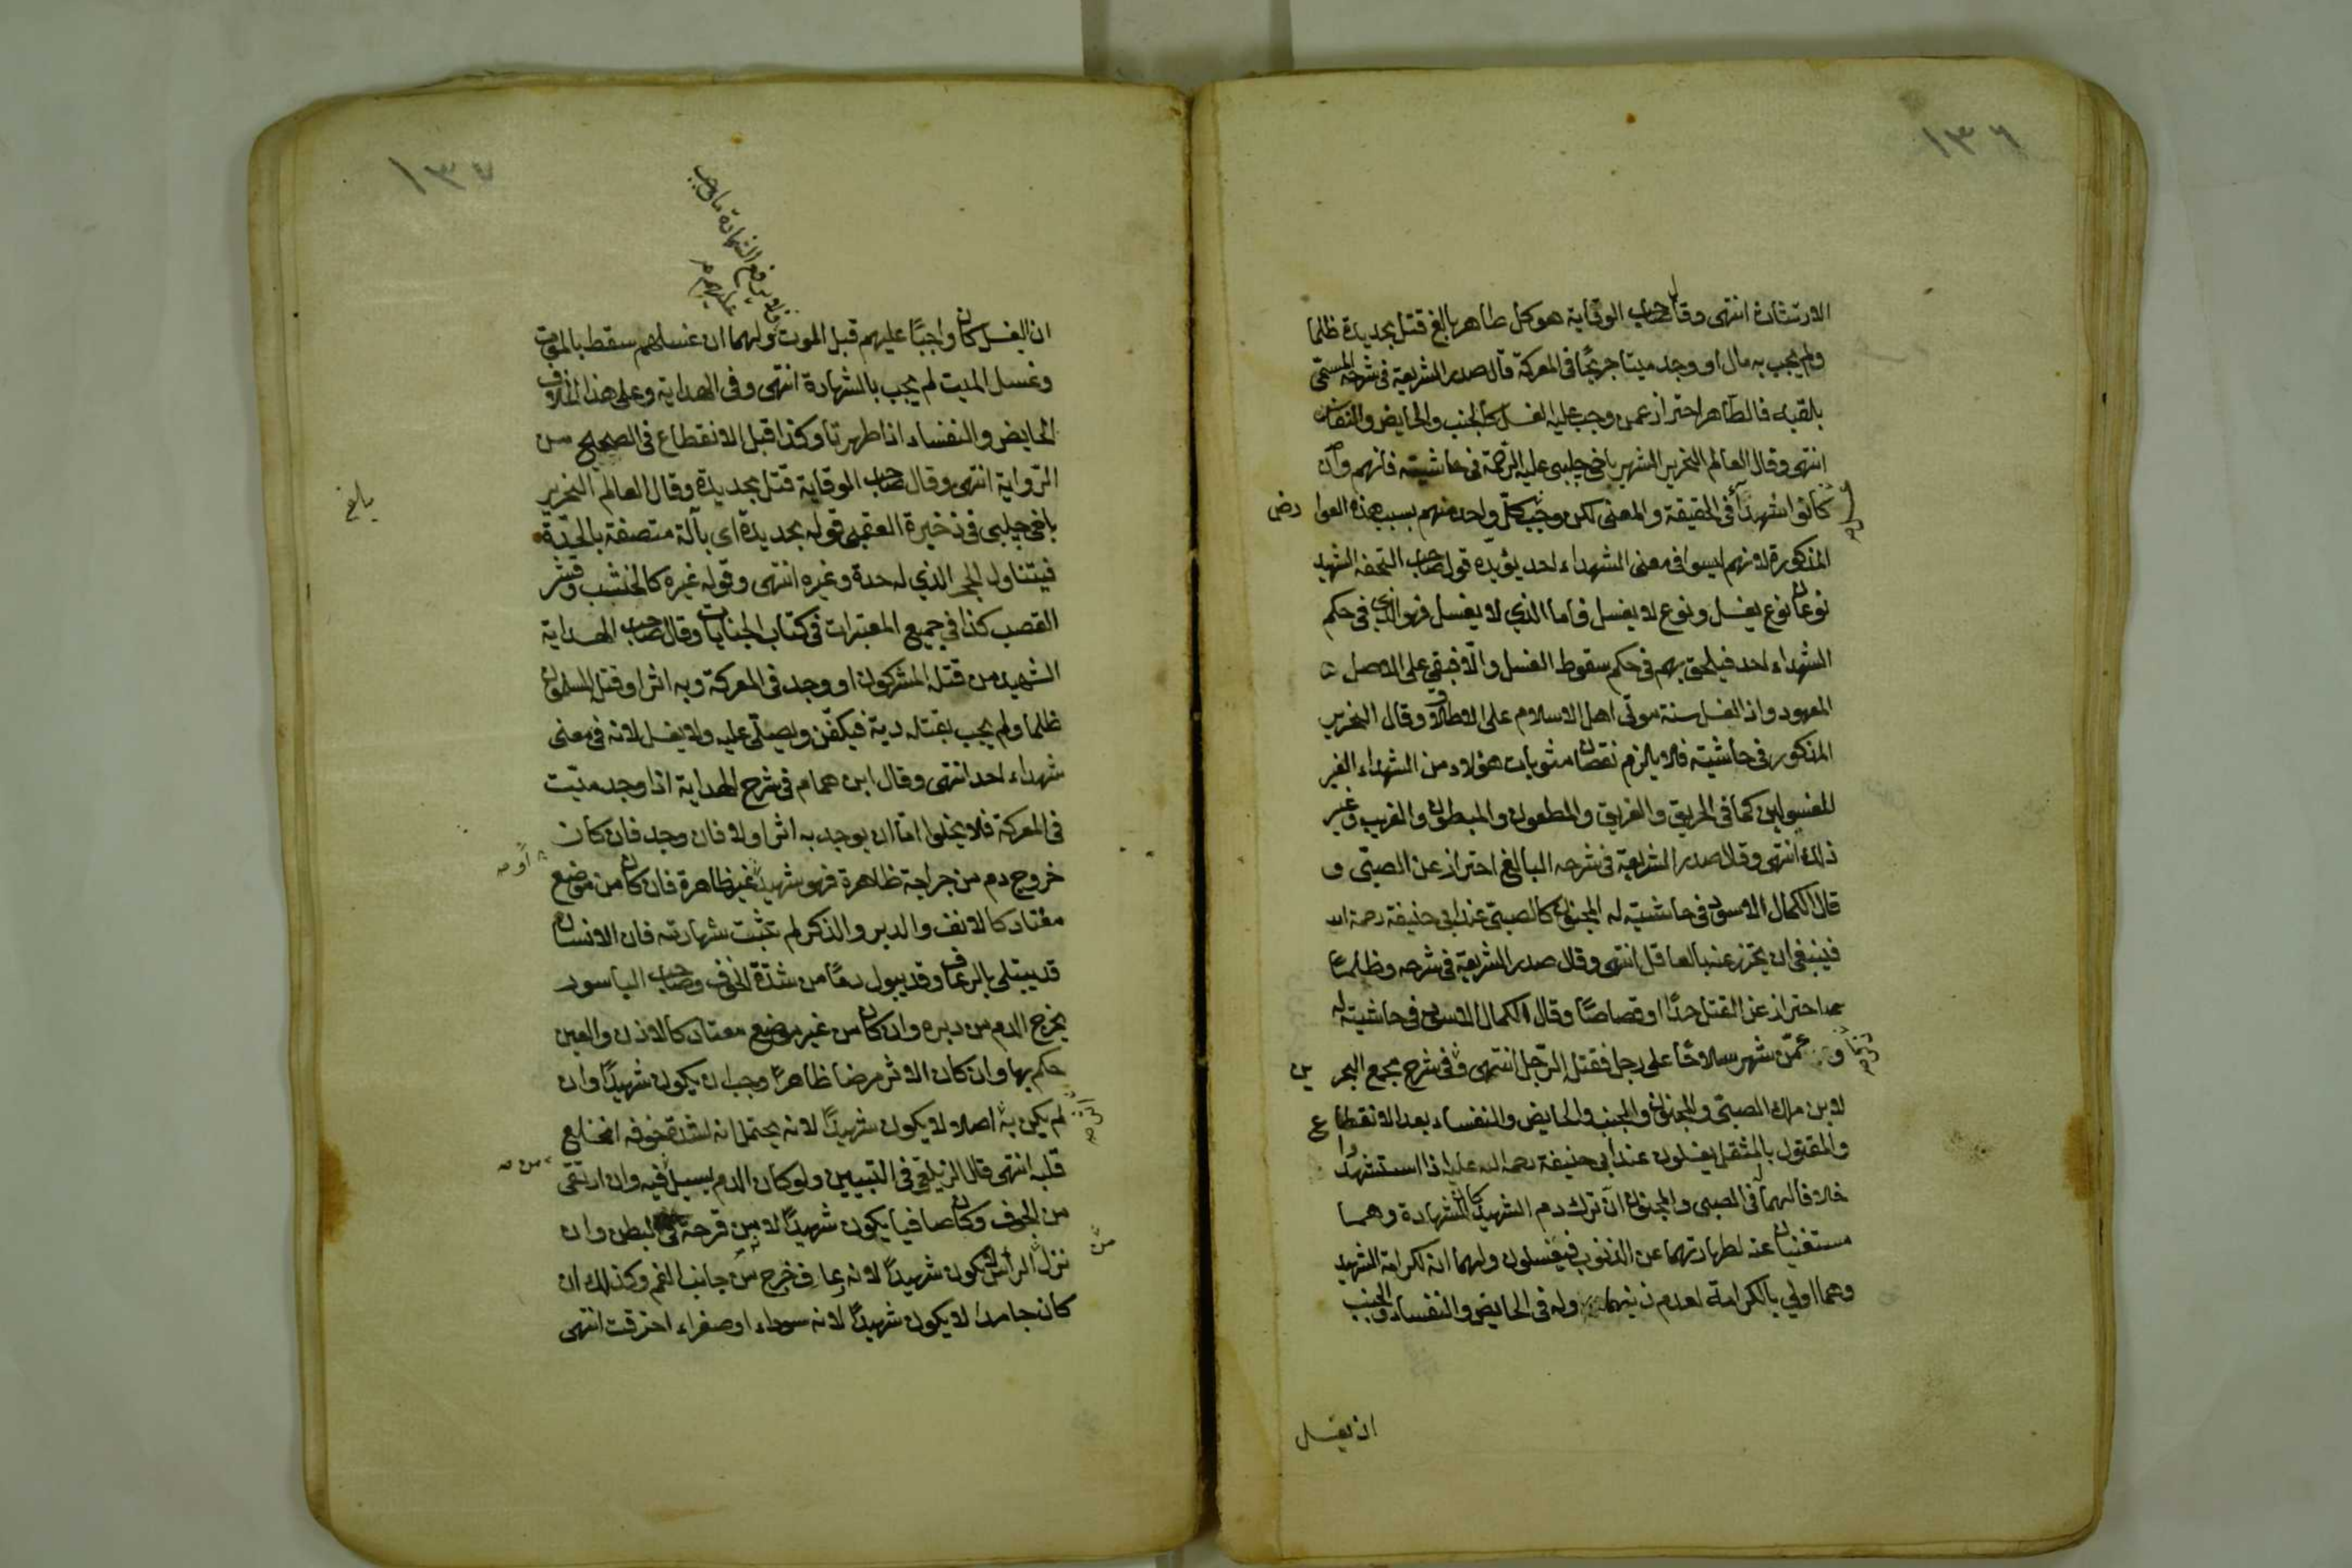 ١٣٦
الارتثاث انتهى وقال صاحب الوقاية هو كل طاهر بالغ قتل بحديدة ظلما
ولم يجب به مال او وجد ميتا جريحا فى المعركة قال صدر الشريعة فى شرحه المسمى
فالطاهر احتراز عمن وجب عليه الغسل كالجنب والحايض والنفاس
انتهى وقال العالم النحرير الشهير باخى چلبى عليه الرحمة فى حاشيته فانهم وان
كانوا شهدآء فى الحقيقة والمعنى لكن وجب كل واحد منهم بسبب هذه العوا رض
المذكورة لانهم ليسوا فى معنى الشهداء احد يؤيده قول صاحب التحفه الشهيد
نوعان نوع يغسل ونوع لا يغسل فاما الذي لا يغسل فهو الذي فى حكم
الشهداء احد فيلحق بهم فى حكم سقوط الغسل والّا فبقى على الاصل
المعهود واذ الغسل سنة موتى اهل الاسلام على الاطلاق وقال النحرير
المذكور فى حاشيته فلا يلزم نقصان مثوبات هؤلاء من الشهداء الغير
المغسولين كما فى الحريق والغريق والمطعون والمبطون والغريب وغير
ذلك انتهى وقال صدر الشريعة فى شرحه البالغ احتراز عن الصبّى و
قال الكمال الاسود فى حاشيته له المجنون كالصبّى عند ابى حنيفة رحمه الله
فينبغى ان يحترز عنه بالعاقل انتهى وقال صدر الشريعة فى شرحه وظلما
احتراز عن القتل حدّا او قصاصًا وقال الكمال الاسود فى حاشيته له
و عمّن شهر سلاحًا على رجل فقتل الرّجل انتهى وفى شرح مجمع البحر ين
لابن ملك الصبّى والمجنون والجنب والحايض والنفساء بعد الانقطاع
والمقتول بالمثقل يغسلون عند ابى حنيفة رحمه الله عليه اذا استشهدوا
خلافا لهما فى الصبى والمجنون انّ ترك دم الشهيد كان للشهادة وهما
مستغنيان عنه لطهارتهما عن الذنوب فيغسلون ولهما انه لكرامة الشهيد
وهما اولى بالكرامة لعدم ذنبهما وله فى الحايض والنفساء والجنب
ان يغسل
١٣٧
ان الغسل كان واجبًا عليهم قبل الموت ولهما ان غسلهم سقط بالموت
وغسل الميت لم يجب بالشهادة انتهى وفى الهداية وعلى هذا الخلاف
الحايض والنفساء اذا طهرتا وكذا قبل الانقطاع فى الصحيح من
الرّواية انتهى وقال صاحب الوقاية قتل بحديدة وقال العالم النحرير
باخى چلبى فى ذخيرة العقبى قوله بحديدة اى بآلة متصفة بالحدّة
فيتناول الحجر الذي له حدة وغيره انتهى وقوله غيره كالخشب وقشر
القصب كذا فى جميع المعتبرات فى كتاب الجنايات وقال صاحب الهداية
الشهيد من قتله المشركون او وجد فى المعركة وبه اثر او قتله المسلمون
ظلما ولم يجب بقتله دية فيكفّن ويصلّى عليه ولا يغسل لانه فى معنى
شهداء احد انتهى وقال ابن همام فى شرح الهداية اذا وجد ميّت
فى المعركة فلا يخلوا امّا ان يوجد به اثر اولا فان وجد فان كان
خروج دم من جراحة ظاهرة فهو شهيد غير ظاهرة فان كان من موضع
معتاد كالانف والدبر والذكر لم تثبت شهادته فان الانسان
قد يبتلى بالرعاف وقد يبول دمًا من شدّة الخوف وصاحب الباسور
يخرج الدم من دبره وان كان من غير موضع معتاد كالاذن والعين
حكم بها وان كان الاثر مرضا ظاهرًا وجب ان يكون شهيدًا وان
لم يكن به اصلا لا يكون شهيدًا لانه يحتمل انه لشدة خوفه انخلع
قلبه انتهى قال الزيلعى فى التبيين ولو كان الدم يسيل فيه وان ارتقى
من الجوف وكان صافيا يكون شهيدًا لانه من قرحة فى البطن وان
نزل الرأس لا يكون شهيدًا لانه رعاف خرج من جانب الفم وكذلك ان
كان جامدا لا يكون شهيدًا لانه سوداء او صفراء احترقت انتهى